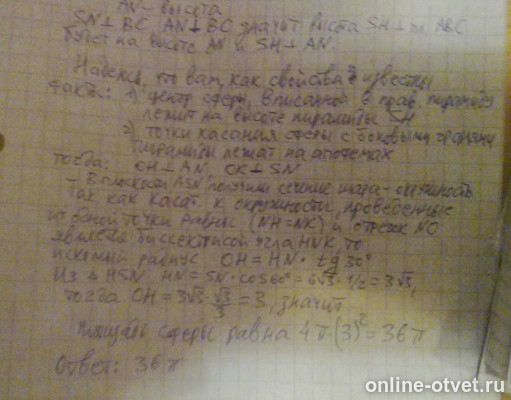 AN - высота
SN⊥BC AN⊥BC значит высота SH⊥пл ABC
будет на высоте AN и SH⊥AN.
Надеюсь, что вам, как свойства известны
факты: 1) центр сферы, вписанной в прав. пирамиду
лежит на высоте пирамиды SH
2) точки касания сферы с боковыми гранями
пирамиды лежат на апофемах
тогда: OH⊥AN, OK⊥SN
- В плоскости ASN получили сечение шара - окружность
Так как касат. к окружности, проведенные
из одной точки равны (NH=NK) и отрезок NO
является биссектрисой угла HNK, то
искомый радиус OH = HN · tg 30°
Из Δ HSN. HN = SN · cos60° = 6√3 · 1/2 = 3√3,
тогда OH = 3√3 · √3/3 = 3, значит
площадь сферы равна 4π·(3)² = 36π
Ответ: 36π
online-otvet.ru